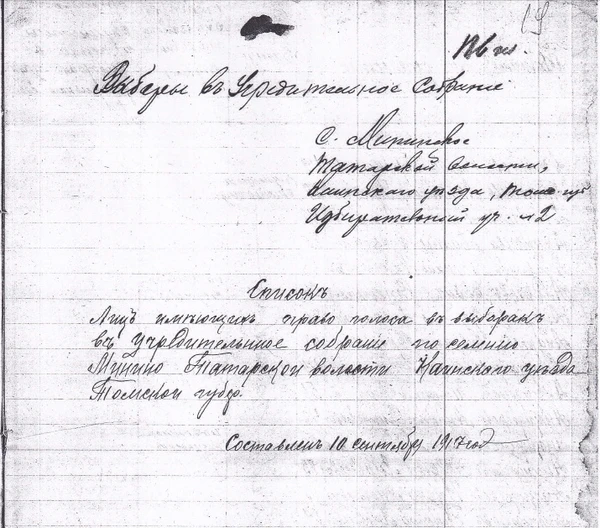 19
Выборы въ Учредительное Собрание
с. Мининское
Татарской волости,
Каинского уезда, Томс. губ
Избирательный уч. №2
Списокъ
Лицъ имеющихъ право голоса въ выборахъ
въ Учредительное собрание по селению
Минино Татарской волости Каинского уезда
Томской губер.
Составленъ 10 сентября 1917 год